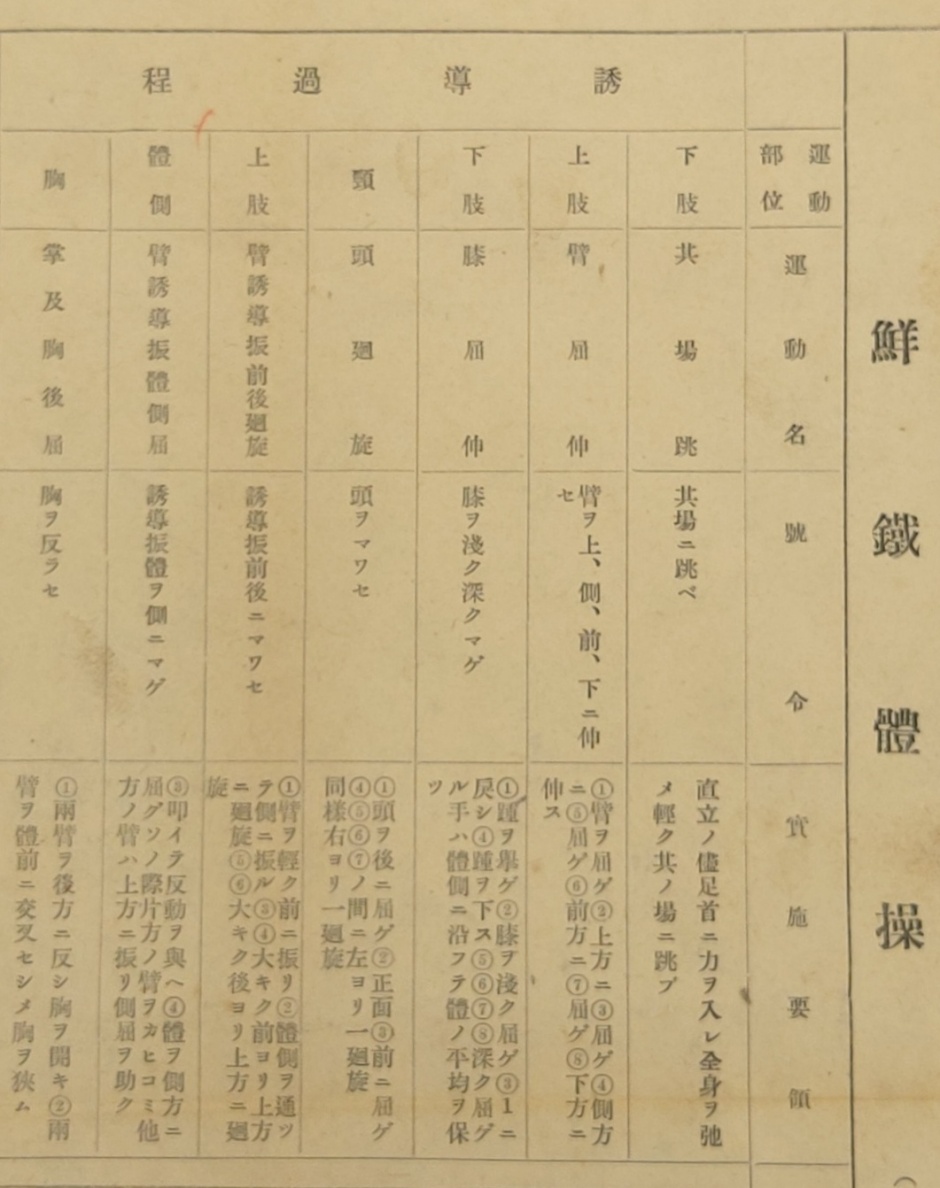 鮮鐵體操
運動
部位
運動名
號令
實施要領
誘導過程
下肢
其場跳
其場ニ跳ベ
直立ノ儘足首ニ力ヲ入レ全身ヲ弛
メ輕ク其ノ場ニ跳ブ
上肢
臂屈伸
臂ヲ上、側、前、下ニ伸
セ
①臂ヲ屈ゲ②上方ニ③屈ゲ④側方
ニ⑤屈ゲ⑥前方ニ⑦屈ゲ⑧下方ニ
伸ス
下肢
膝屈伸
膝ヲ淺ク深クマゲ
①踵ヲ擧ゲ②膝ヲ淺ク屈ゲ③1ニ
戾シ④踵ヲ下ス⑤⑥⑦⑧深ク屈ゲ
ル手ハ體側ニ沿フテ體ノ平均ヲ保
ツ
頸
頭廻旋
頭ヲマワセ
①頭ヲ後ニ屈ゲ②正面③前ニ屈ゲ
④⑤⑥⑦ノ間ニ左ヨリ一廻旋
同樣右ヨリ一廻旋
上肢
臂誘導振前後廻旋
誘導振前後ニマワセ
①臂ヲ輕ク前ニ振リ②體側ヲ通ツ
テ側ニ振ル③④大キク前ヨリ上方
ニ廻旋⑤⑥大キク後ヨリ上方ニ廻
旋
體側
臂誘導振體側屈
誘導振體ヲ側ニマゲ
③叩イテ反動ヲ與ヘ④體ヲ側方ニ
屈グソノ際片方ノ臂ヲカヒコミ他
方ノ臂ハ上方ニ振リ側屈ヲ助ク
胸
掌及胸後屈
胸ヲ反ラセ
①兩臂ヲ後方ニ反シ胸ヲ開キ②兩
臂ヲ體前ニ交叉セシメ胸ヲ狹ム